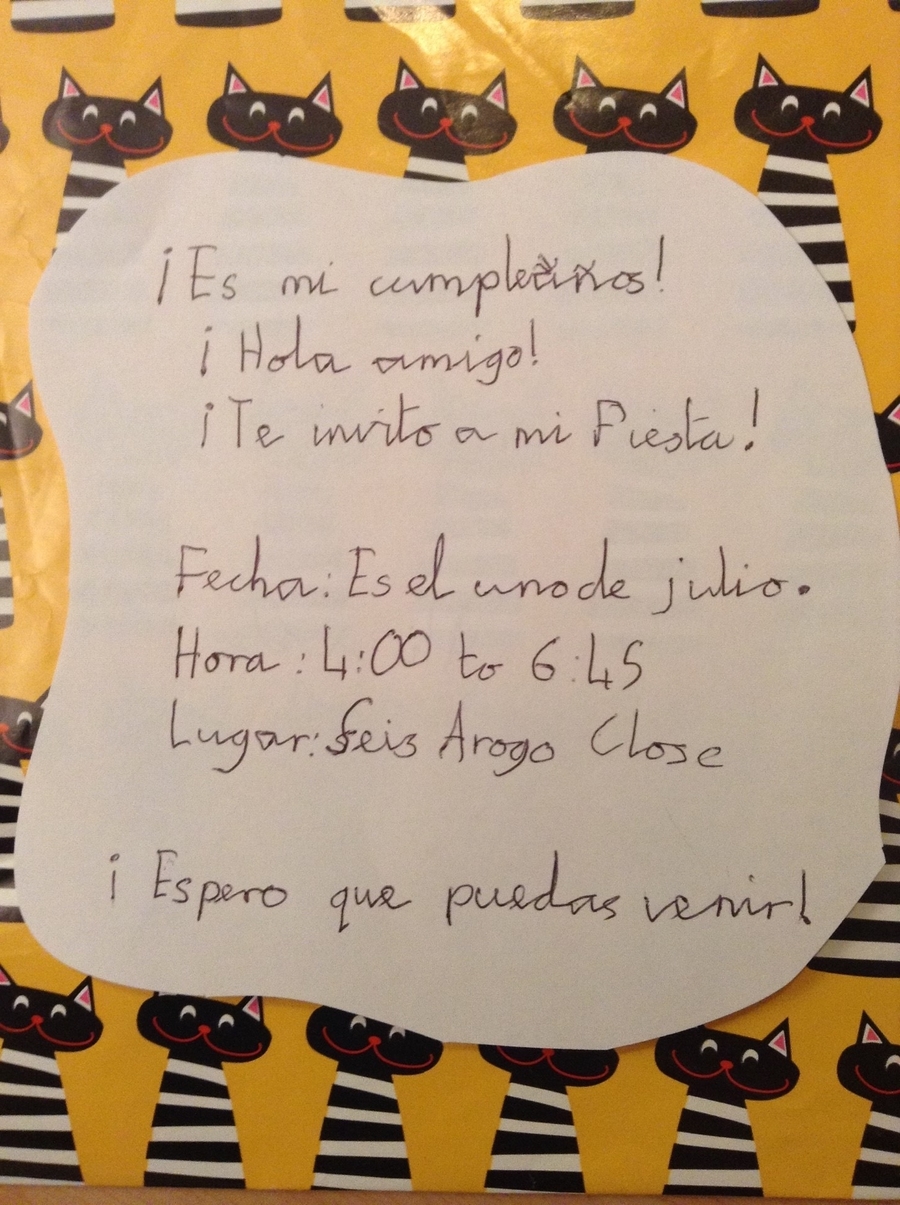 ¡Es mi cumpleaños!
¡Hola amigo!
¡Te invito a mi Fiesta!
Fecha: Es el uno de julio.
Hora: 4:00 to 6:45
Lugar: Seis Arogo Close
¡Espero que puedas venir!